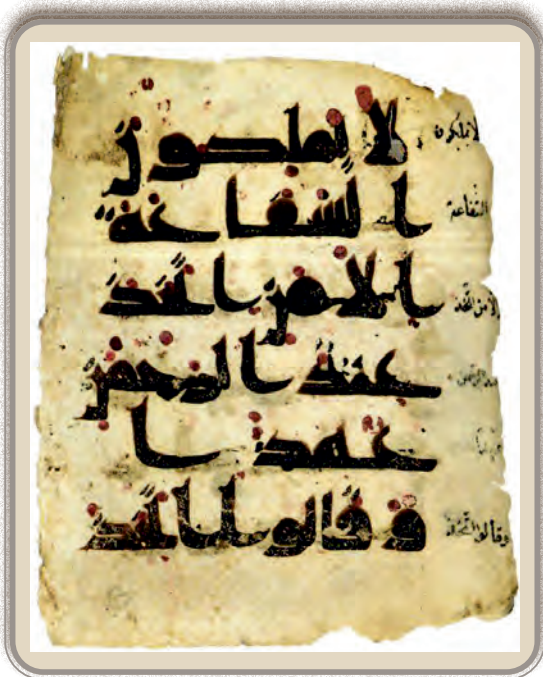 لا يملكون
الشفاعة
الا من اتخذ
عند الرحمن
عهدا
و قالوا اتخذ
لا يملكون
الشفاعة
الا من اتخذ
وقالوا اتخذ